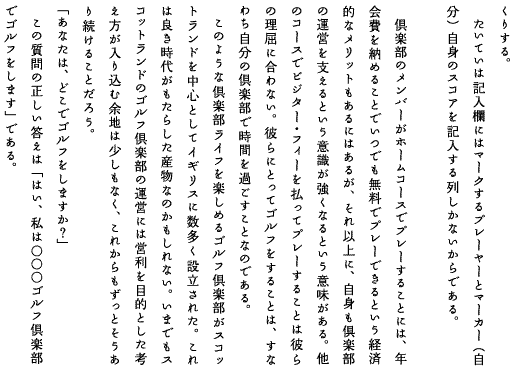 くりする。
たいていは記入欄にはマークするプレーヤーとマーカー（自
分）自身のスコアを記入する列しかないからである。
倶楽部のメンバーがホームコースでプレーすることには、年
会費を納めることでいつでも無料でプレーできるという経済
的なメリットもあるにはあるが、それ以上に、自身も倶楽部
の運営を支えるという意識が強くなるという意味がある。他
のコースでビジター・フィーを払ってプレーすることは彼ら
の理屈に合わない。彼らにとってゴルフをすることは、すな
わち自分の倶楽部で時間を過ごすことなのである。
このような倶楽部ライフを楽しめるゴルフ倶楽部がスコッ
トランドを中心としてイギリスに数多く設立された。これ
は良き時代がもたらした産物なのかもしれない。いまでもス
コットランドのゴルフ倶楽部の運営には営利を目的とした考
え方が入り込む余地は少しもなく、これからもずっとそうあ
り続けることだろう。
「あなたは、どこでゴルフをしますか？」
この質問の正しい答えは「はい、私は〇〇〇ゴルフ倶楽部
でゴルフをします」である。